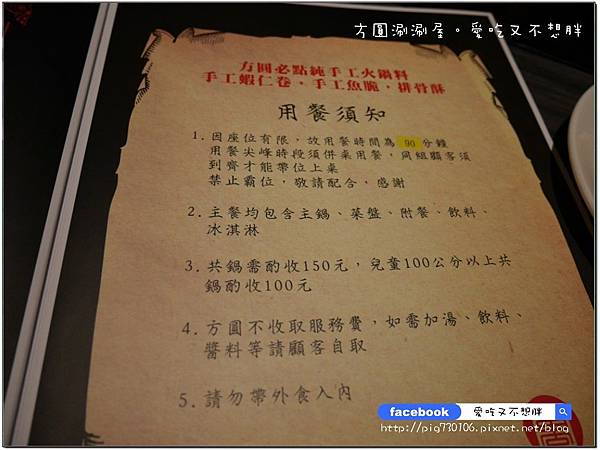 方圓涮涮屋。愛吃又不想胖
方圓必點純手工火鍋料
手工蝦仁卷．手工魚脆．排骨酥
用餐須知
1. 因座位有限，故用餐時間為 90 分鐘
用餐尖峰時段須併桌用餐，同組顧客須
到齊才能帶位上桌
禁止霸位，敬請配合，感謝
2. 主餐均包含主鍋、菜盤、附餐、飲料、
冰淇淋
3. 共鍋需酌收150元，兒童100公分以上共
鍋酌收100元
4. 方圓不收取服務費，如需加湯、飲料、
醬料等請顧客自取
5. 請勿帶外食入內
facebook 愛吃又不想胖
http://pig730106.pixnet.net/blog